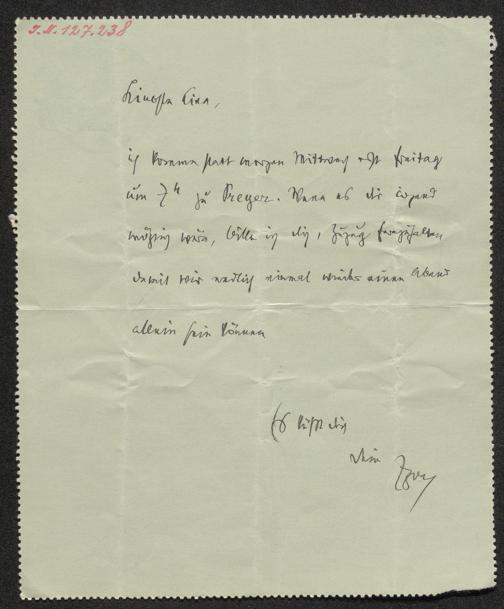 I.N. 127.238
Liebste Lina,
ich komme statt morgen Mittwoch erst Freitag
um 7ʰ zu Breyer. Wenn es dir irgend
möglich wäre, bitte ich dich, fernzuhalten
damit wir endlich einmal wieder einen Abend
allein sein können
Es küßt dich
dein